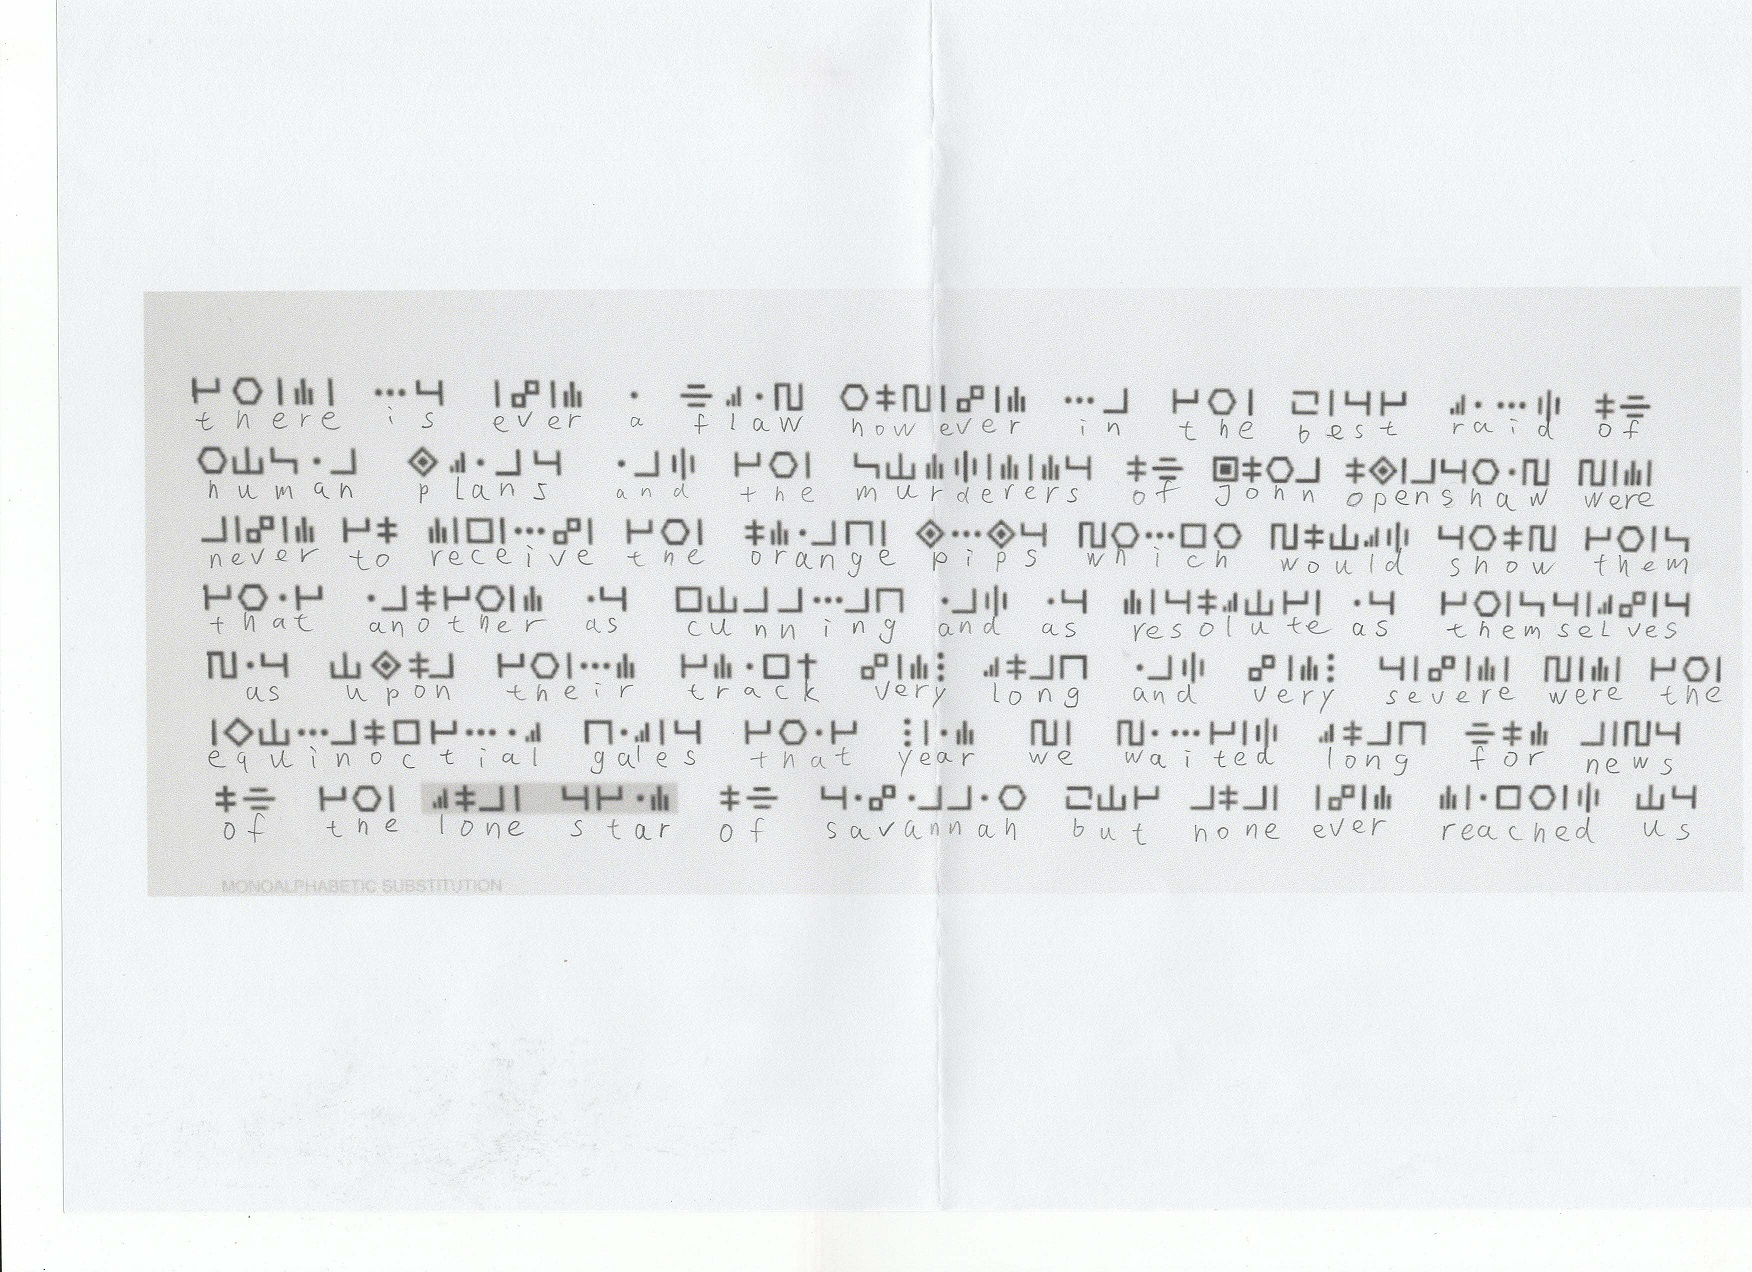 there is ever a flaw however in the best raid of
human plans and the murderers of John openshaw were
never to receive the orange pips which would show them
that another as cunning and as resolute as themselves
as upon their track very long and very severe were the
equinoctial gales that year we waited long for news
of the lone star of savannah but none ever reached us
MONOALPHABETIC SUBSTITUTION